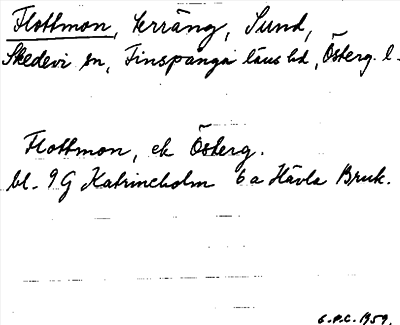 Flottmon, terräng, Sund,
Skedevi sn, Finspånga läns hd, Österg. l.
Flottmon, ek Österg.
bl. 9 G Katrineholm 6 a Hävla Bruk.
C.P.C. 1959.